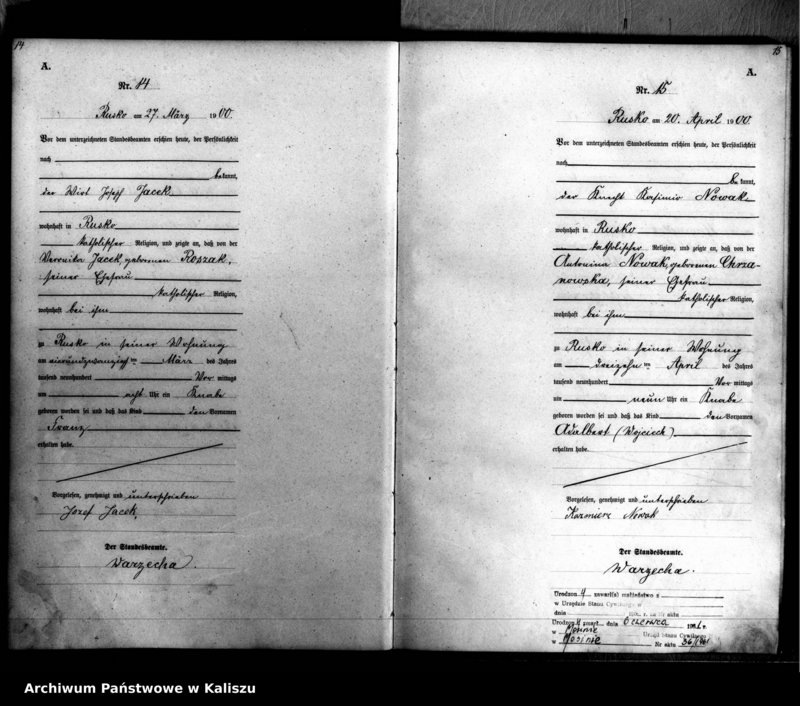 14
A.
Nr. 14
Rusko am 27. März 1900
Vor dem unterzeichneten Standesbeamten erschien heute, der Persönlichkeit
nach
bekannt,
der Wirt Josef Jacek
wohnhaft in Rusko
katholischer Religion, und zeigte an, daß von der
Veronika Jacek, geborenen Roszak,
seiner Ehefrau
katholischer Religion,
wohnhaft bei ihm
zu Rusko in seiner Wohnung
am vierundzwanzigsten März des Jahres
tausend neunhundert Vor mittags
um acht Uhr ein Knabe
geboren worden sei und daß das Kind den Vornamen
Franz
erhalten habe.
Vorgelesen, genehmigt und unterschrieben
Jozef Jacek,
Der Standesbeamte.
Warzecha.
15
A.
Nr. 15
Rusko am 20. April 1900
Vor dem unterzeichneten Standesbeamten erschien heute, der Persönlichkeit
nach
bekannt,
der Knecht Kasimir Nowak
wohnhaft in Rusko
katholischer Religion, und zeigte an, daß von der
Antonina Nowak, geborenen Chrza-
nowska, seiner Ehefrau
katholischer Religion,
wohnhaft bei ihm
zu Rusko in seiner Wohnung
am dreizehnten April des Jahres
tausend neunhundert Vor mittags
um neun Uhr ein Knabe
geboren worden sei und daß das Kind den Vornamen
Adalbert (Wojciech)
erhalten habe.
Vorgelesen, genehmigt und unterschrieben
Kazmierz Nowak
Der Standesbeamte.
Warzecha.
Urodzony zawarł(a) małżeństwo z
w Urzędzie Stanu Cywilnego w
dnia r. za Nr aktu
Urodzony zmarł dnia 6 czerwca 1961 r.
w Mosinie Urząd Stanu Cywilnego
w Mosinie Nr aktu 36/1961
Archiwum Państwowe w Kaliszu